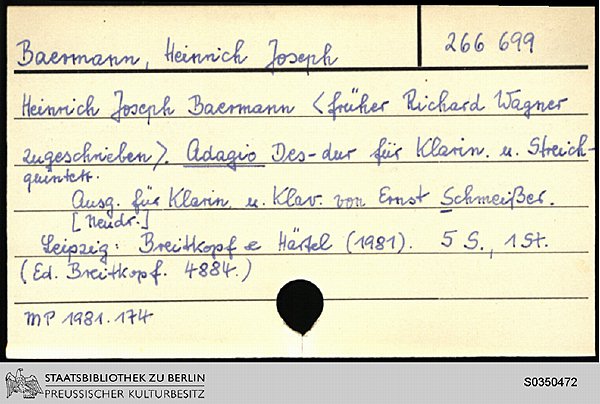 Baermann, Heinrich Joseph
266 699
Heinrich Joseph Baermann <früher Richard Wagner
zugeschrieben>. Adagio Des-dur für Klarin. u. Streich-
quintett.
Ausg. für Klarin. u. Klav. von Ernst Schmeißer.
[Neudr.]
Leipzig: Breitkopf & Härtel (1981). 5 S., 1 St.
(Ed. Breitkopf. 4884.)
MP 1981.174
STAATSBIBLIOTHEK ZU BERLIN
PREUSSISCHER KULTURBESITZ
S0350472